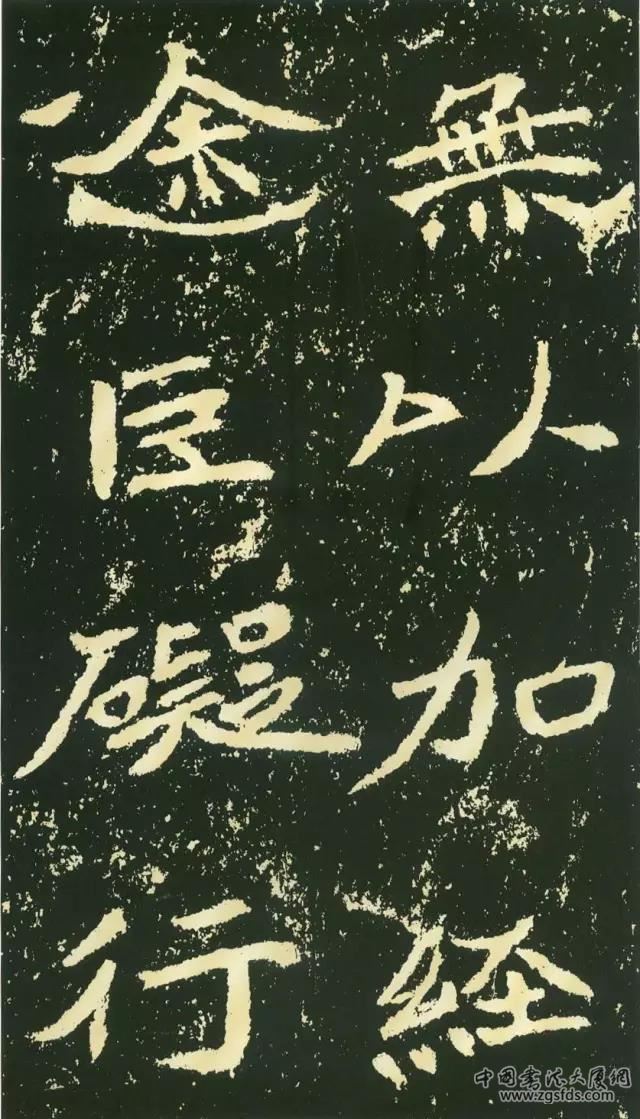 無以加經
途巨礙行
中國書法大厦網
www.zgsfds.com